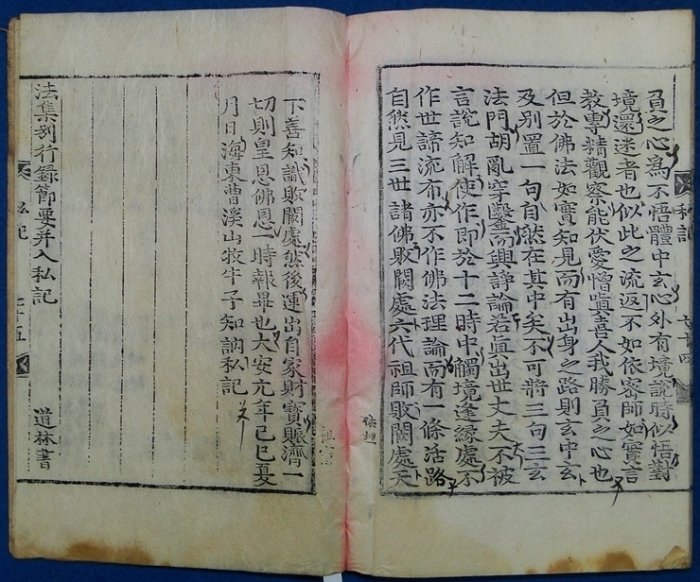 負之心爲不悟體中玄心外有境說時似悟對
境還迷者也似此之流返不如依密師如實言
教專精觀察能伏愛憎嗔喜人我勝負之心也
但於佛法如實知見而有出身之路則玄中玄
及別置一句自然在其中矣不可將三句三玄
法門胡亂穿鑿而興諍論若眞出世丈夫不被
言說知解使作即於十二時中觸境逢緣處不
作世諦流布亦不作佛法理論而有一條活路
自然見三世諸佛敗闕處六代祖師敗闕處天
私記
七十四
下善知識敗闕處然後運出自家財寶賑濟一
切則皇恩佛恩一時報畢也大安元年己巳夏
月日海東曹溪山牧牛子知訥私記
法集別行錄節要并入私記
道林書
私記
七十五